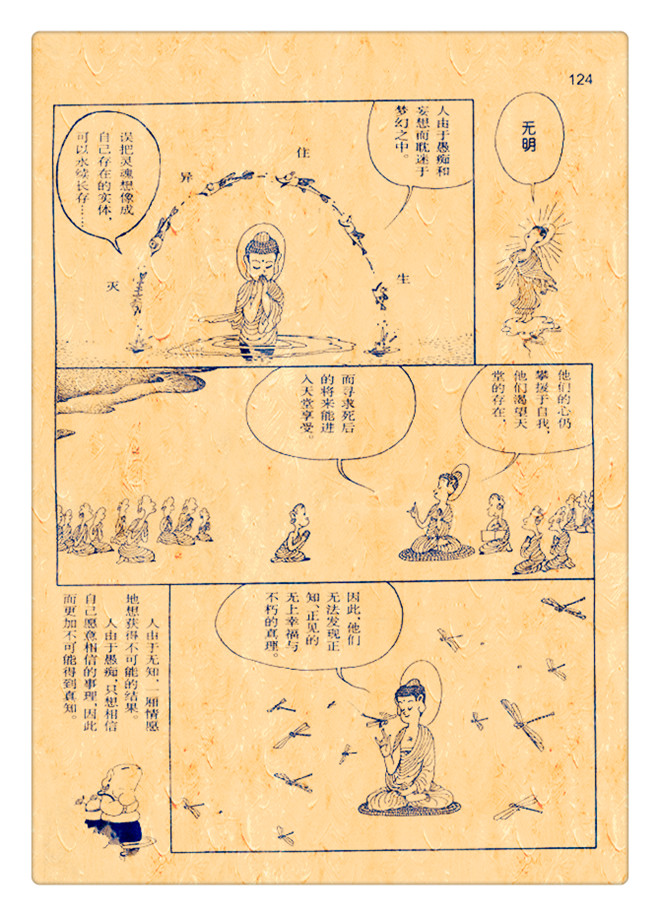 124
无明
人由于愚痴和
妄想而耽迷于
梦幻之中。
误把灵魂想像成
自己存在的实体，
可以永续长存……
生
住
异
灭
他们的心仍
攀援于自我，
他们渴望天
堂的存在，
而寻求死后
的将来能进
入天堂享受。
因此，他们
无法发现正
知、正见的
无上幸福与
不朽的真理。
人由于无知，一厢情愿
地想获得不可能的结果。
人由于愚痴，只想相信
自己愿意相信的事理，因此
而更加不可能得到真知。